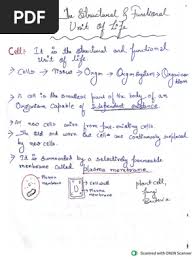 The Structural & Functional
Unit of Life
Cell: It is the structural and functional
unit of life
→ Cells → Tissue → Organ → Organ System → Organization
→ A cell is the smallest part of the body of an
Organism capable of independent existence
→ New cells arise from pre-existing cells
→ The old and worn out cells are continuously replaced
by new cells.
→ It is surrounded by a selectively permeable
membrane called plasma membrane.
Plasma
membrane
Cell wall
Plasma
membrane
plant cell,
Fungi
Bacteria
Scanned with OKEN Scanner